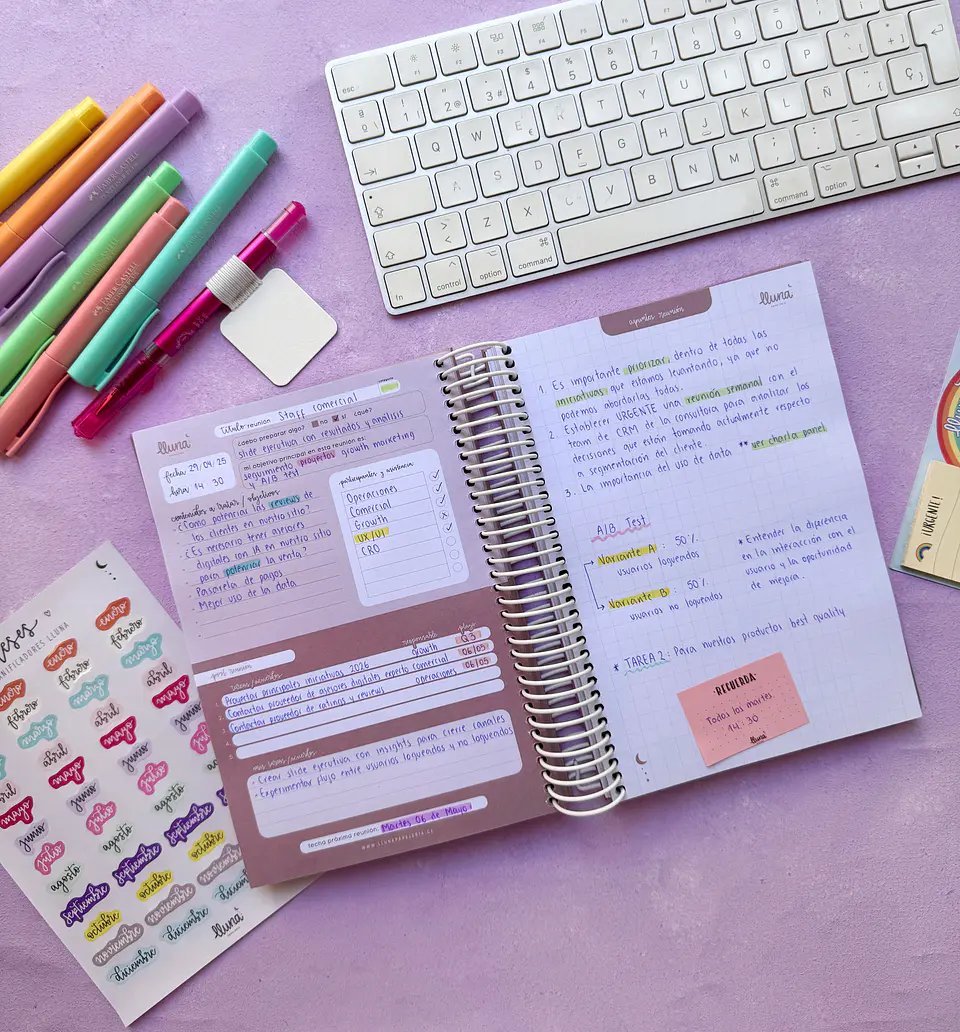 esc
F1
F2
F3
F4
F5
F6
F7
Q W E R T Y U I O P
A S D F G H J K L Ñ Ç
Z X C V B N M
fn
control
option
command
command
option
FABER-CASTELL
FABER-CASTELL
FABER-CASTELL
FABER-CASTELL
llunà
título reunión Staff comercial
¿debo preparar algo? no sí ¿qué?
slide ejecutiva con resultados y analisis
mi objetivo principal en esta reunión es:
seguimiento proyectos growth marketing
y A/B test
fecha 29/04/25
hora 14:30
contenidos a tratar / objetivos
- ¿Cómo potenciar las reviews de
los clientes en nuestro sitio?
- ¿Es necesario tener asesores
digitales con IA en nuestro sitio
para potenciar la venta?
- Pasarela de pagos
- Mejor uso de la data
participantes y asistencia
Operaciones
Comercial
Growth
UX/UI
CRO
post reunión
tareas / acuerdos responsable plazo
1. Proyectos principales iniciativas 2026 growth Q3
2. Contactar proveedor de asesores digitales experto comercial 06/05
3. Contactar proveedor de ratings y reviews operaciones 06/05
4.
5.
mis tareas / acuerdos
- Crear slide ejecutiva con insights para cierre canales
- Experimentar flujo entre usuarios logueados y no logueados
fecha próxima reunión: Martes 06 de Mayo
apuntes reunión
llunà
1. Es importante priorizar, dentro de todas las
iniciativas que estamos levantando, ya que no
podemos abordarlas todas.
2. Establecer URGENTE una reunión semanal con el
team de CRM de la consultora para analizar las
decisiones que están tomando actualmente respecto
a segmentación del cliente.
3. La importancia del uso de data ** ver charla panel
A/B Test
Variante A : 50%
usuarios logueados
Variante B : 50%
usuarios no logueados
* Entender la diferencia
en la interacción con el
usuario y la oportunidad
de mejora.
* TAREA 2: Para nuestros productos best quality
RECUERDA:
Todos los martes
14:30
llunà
¡URGENTE!
PLANIFICADORES LLUNA
enero enero enero
febrero febrero febrero
marzo marzo marzo
abril abril
mayo mayo mayo
junio junio junio
julio julio julio
agosto agosto agosto
septiembre septiembre septiembre
octubre octubre octubre
noviembre noviembre noviembre
diciembre diciembre
llunà